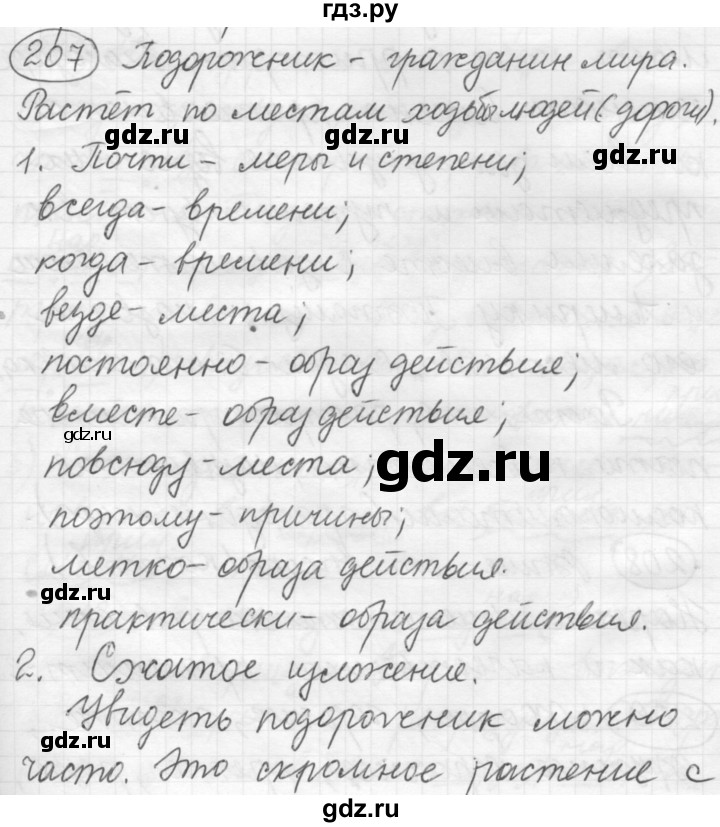 гдз.ру
207 Подорожник - гражданин мира.
Растёт по местам ходьбы людей (дороги).
gdz.ru
gdz.ru
1. Почти - меры и степени;
всегда - времени;
gdz.ru
gdz.ru
когда - времени;
везде - места;
постоянно - образ действия;
вместе - образ действия;
gdz.ru
gdz.ru
повсюду - места;
поэтому - причины;
метко - образа действия.
gdz.ru
gdz.ru
практически - образа действия.
2. Сжатое изложение.
Увидеть подорожник можно
gdz.ru
gdz.ru
часто. Это скромное растение с
gdz.ru